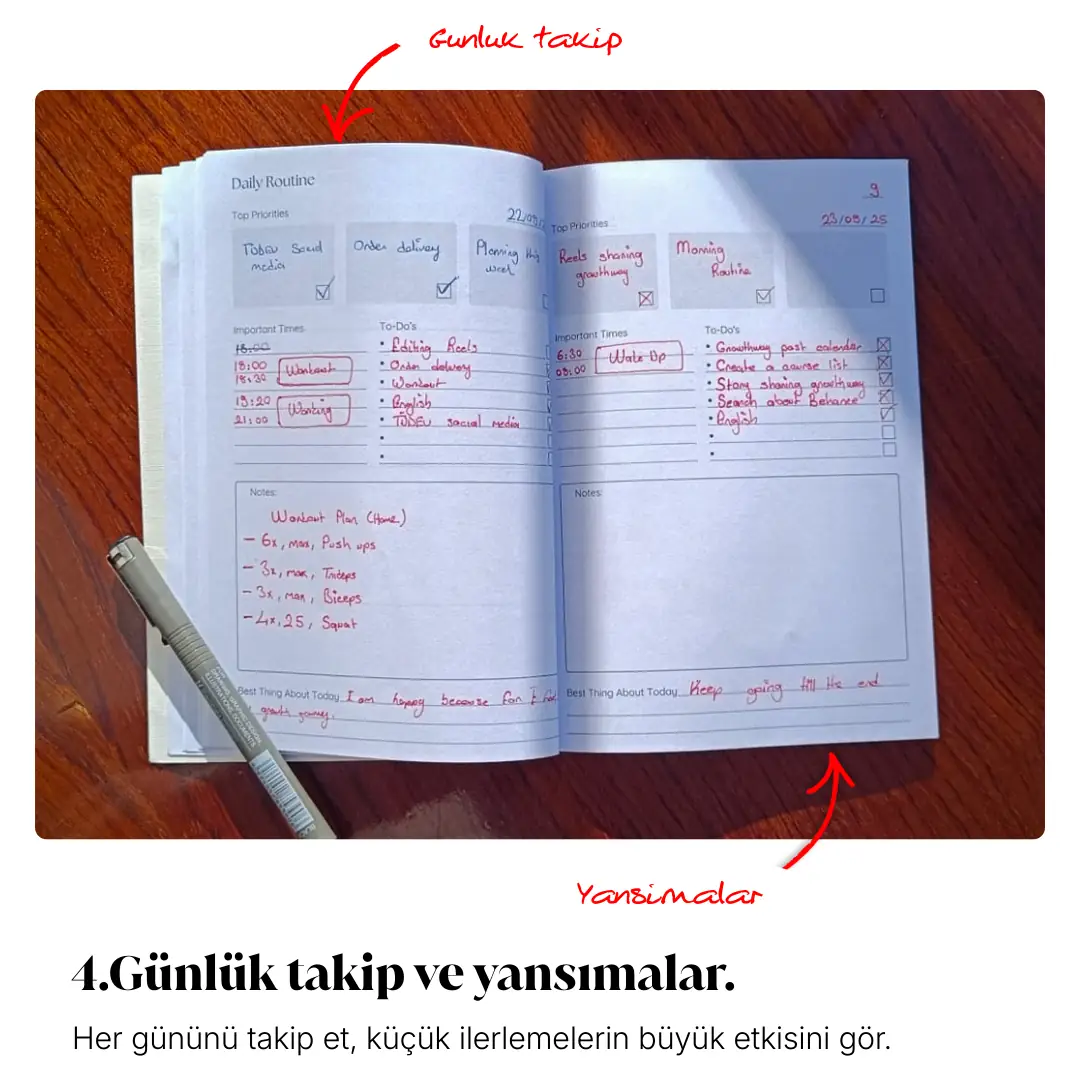 Gunluk takip
Daily Routine
Top Priorities
22/09/
TODEV Social media
Order delivery
Planning this week
Important Times
18:00
18:00
18:30
Workout
19:20
21:00
Working
To-Do's
• Editing Reels
• Order delivery
• Workout
• English
• TODEV social media
•
•
Notes:
Workout Plan (Home)
- 6x, max, Push ups
- 3x, max, Triceps
- 3x, max, Biceps
- 4x, 25, Squat
Best Thing About Today I am happy because for I
growth journey.
9
23/09/25
Top Priorities
Reels sharing growthway
Morning Routine
Important Times
6:30
Wake Up
To-Do's
• Growthway post calendar
• Create a course list
• Story sharing growthway
• Search about Behance
• English
•
•
Notes:
Best Thing About Today Keep going till the end
Yansimalar
4.Günlük takip ve yansımalar.
Her gününü takip et, küçük ilerlemelerin büyük etkisini gör.